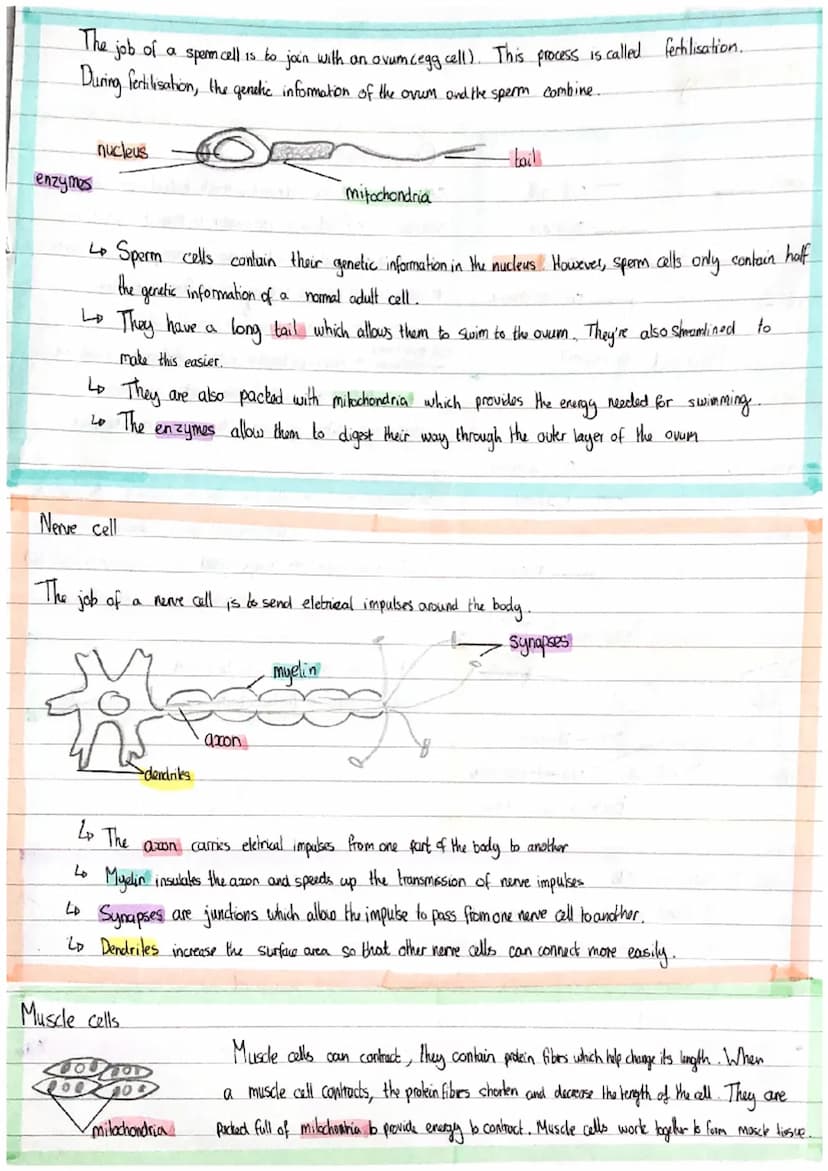 The job of a sperm cell is to join with an ovum (egg cell). This process is called fertilisation.
During fertilisation, the genetic information of the ovum and the sperm combine.
nucleus
tail
enzymes
mitochondria
↳ Sperm cells contain their genetic information in the nucleus. However, sperm cells only contain half
the genetic information of a normal adult cell.
↳ They have a long tail which allows them to swim to the ovum. They're also streamlined to
make this easier.
↳ They are also packed with mitochondria which provides the energy needed for swimming.
↳ The enzymes allow them to digest their way through the outer layer of the ovum
Nerve cell
The job of a nerve cell is to send eletrical impulses around the body.
synapses
myelin
axon
dendrites
↳ The axon carries eletrical impulses from one part of the body to another
↳ Myelin insulates the axon and speeds up the transmission of nerve impulses
↳ Synapses are junctions which allow the impulse to pass from one nerve cell to another.
↳ Dendrites increase the surface area so that other nerve cells can connect more easily.
Muscle cells
Muscle cells can contract, they contain protein fibres which help change its length. When
a muscle cell contracts, the protein fibres shorten and decrease the length of the cell. They are
packed full of mitochontria to provide energy to contract. Muscle cells work together to form muscle tissue.
mitochondria